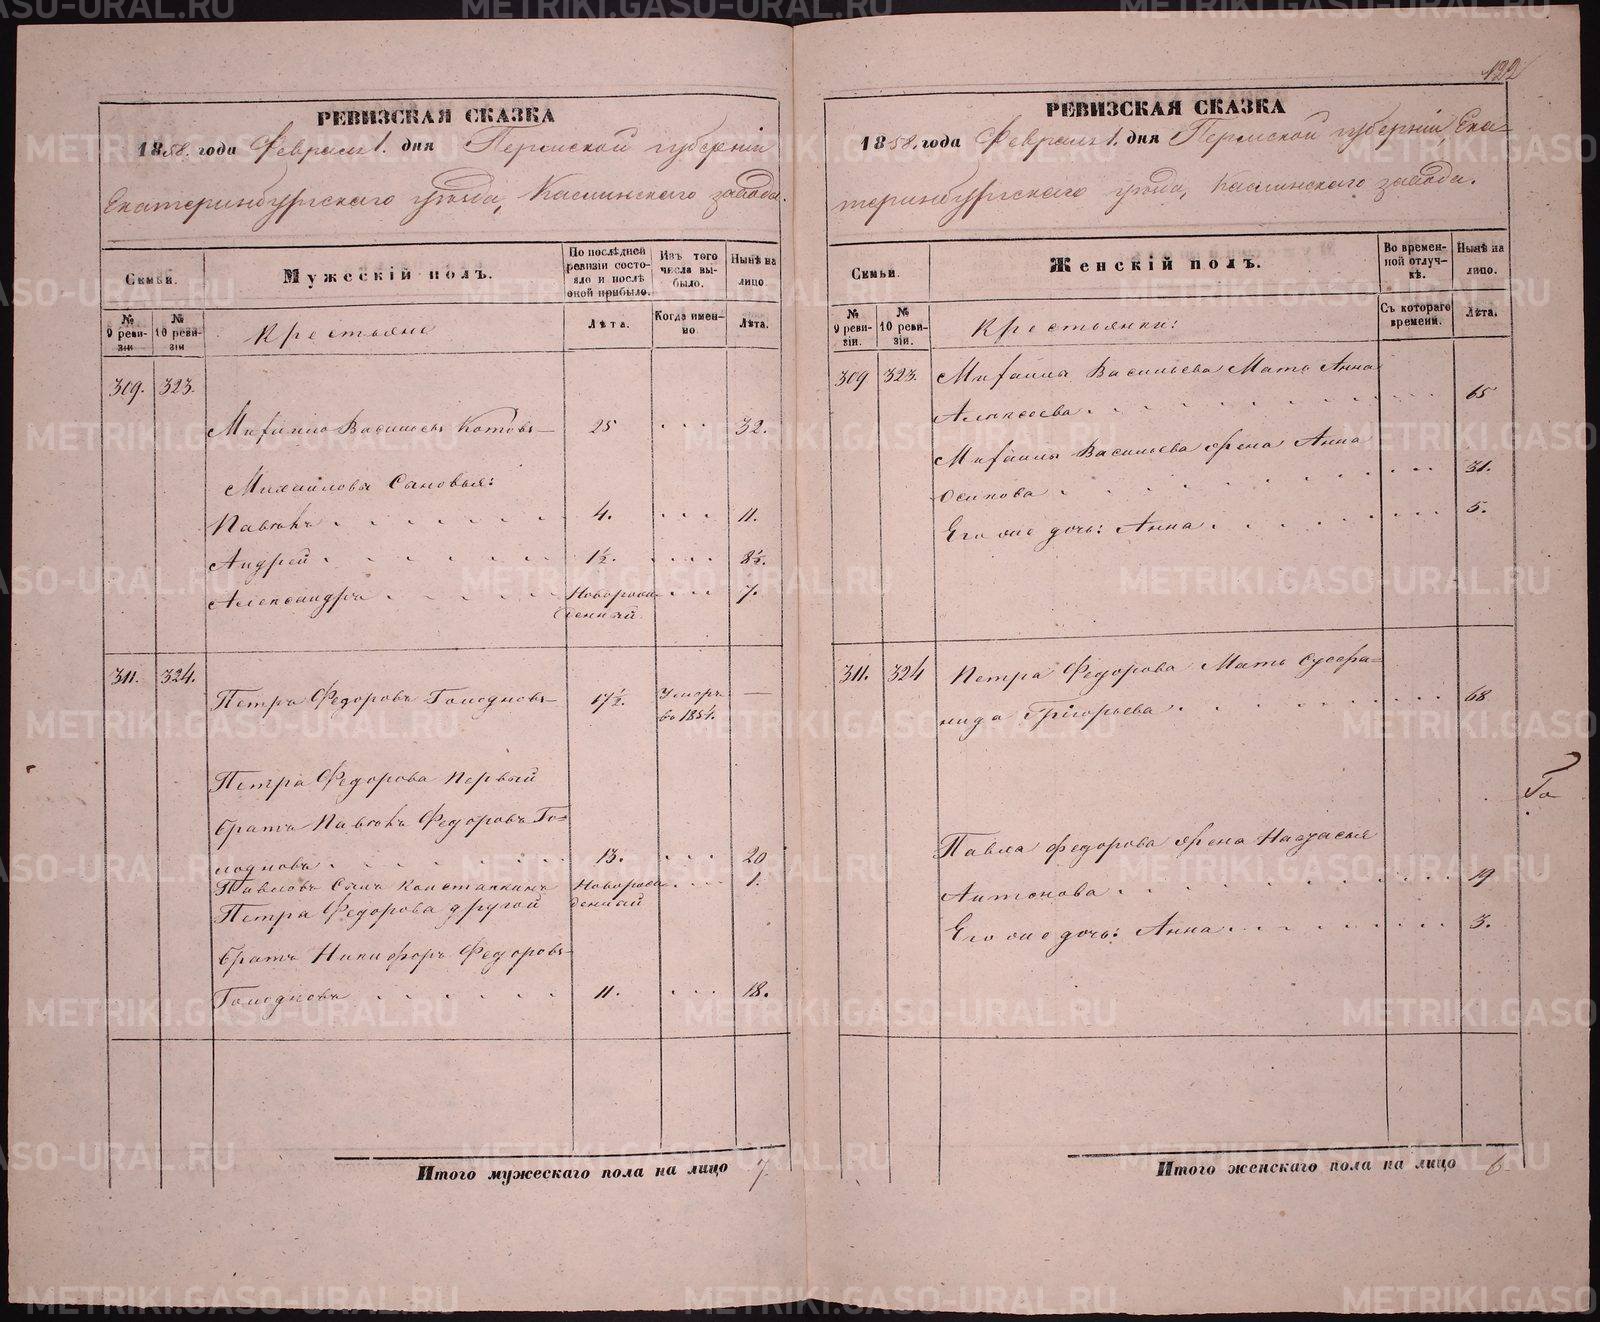 РЕВИЗСКАЯ СКАЗКА
1858. года Февраля 1. дня Пермской губерніи
Екатеринбургскаго уѣзда, Каслинскаго завода.
Семьи.
Мужескій полъ.
По послѣдней ревизіи состояло и послѣ оной прибыло.
Изъ того числа выбыло.
Нынѣ на лицо.
№ 9 ревизіи
№ 10 ревизіи
Крестьяне
Лѣта.
Когда именно
Лѣта.
309. 323.
Михаило Васильевъ Котовъ 25 32.
Михайловы Сыновья:
Павелъ 4. 11.
Андрей 1½. 8½.
Александръ Новорож- 7.
денный
311. 324.
Петръ Федоровъ Голодновъ 17½. Умеръ —
въ 1851.
Петра Федорова первый
братъ Павелъ Федоровъ Го=
лодновъ 13. 20
Павловъ Сынъ Констанкинъ Новорож- 1.
Петра Федорова другой денный
братъ Никифоръ Федоровъ
Голодновъ 11. 18.
Итого мужескаго пола на лицо 7.
122
РЕВИЗСКАЯ СКАЗКА
1858. года Февраля 1. дня Пермской губерніи Ека=
теринбургскаго уѣзда, Каслинскаго завода.
Семьи.
Женскій полъ.
Во временной отлучкѣ.
Нынѣ на лицо.
№ 9 ревизіи.
№ 10 ревизіи.
Крестьянки:
Съ котораго времени.
Лѣта.
309 323. Михаила Васильева Мать Анна
Алексеева 65
Михаила Васильева жена Анна
Осипова 31.
Его же дочь: Анна 5.
311. 324 Петра Федорова Мать Суофра=
нида Григорьева 68
Павла Федорова жена Настасья
Антонова 19
Его же дочь: Анна 3.
Итого женскаго пола на лицо 6
METRIKI.GASO-URAL.RU